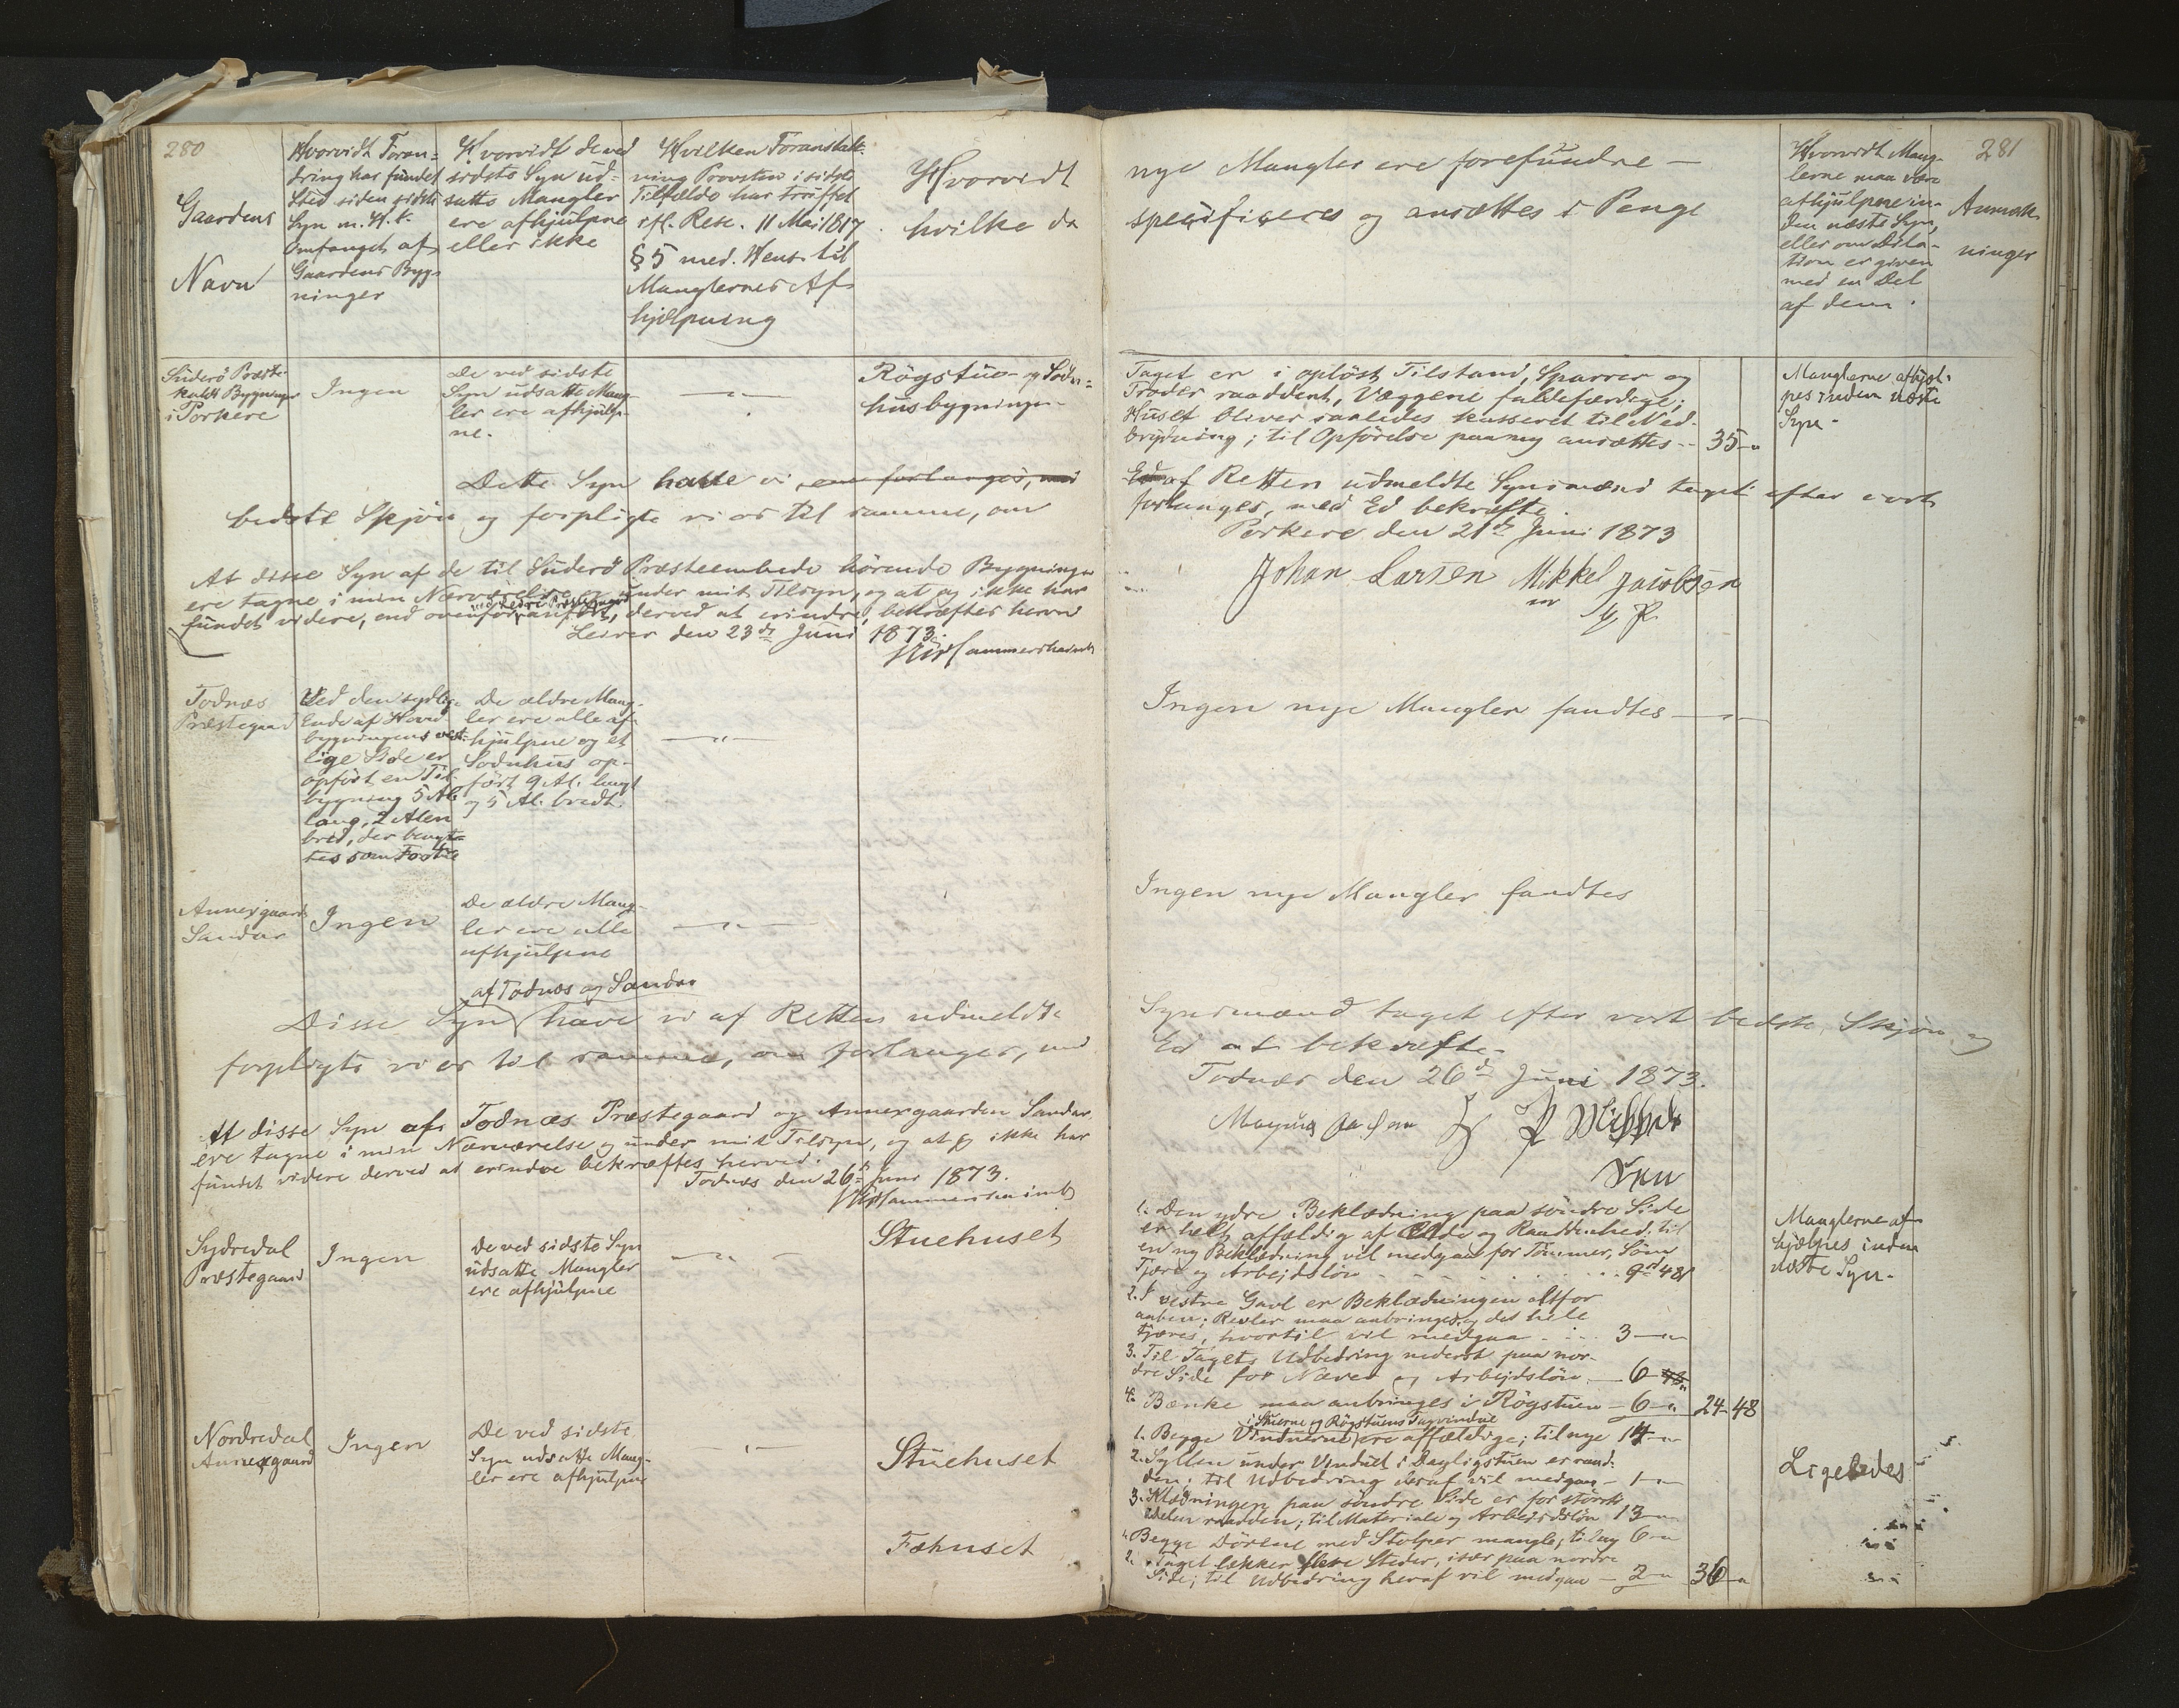 280
Gaardens
Navn
Hvorvidt Foran=
dring har fundet
Sted siden sidste
Syn m. H. t.
Omfanget af
Gaardens Byg-
ninger
Hvorvidt de ved
sidste Syn ud-
satte Mangler
ere afhjulpne
eller ikke
Hvilken Foranstalt-
ning Provsten i sidste
Tilfælde har truffet
ifl. Resc. 11 Mai 1817
§ 5 med. Hens. til
Manglernes Af-
hjælpning
Hvorvidt
hvilke da
nye Mangler ere forefundne —
specificeres og ansættes i Penge
Hvorvidt Mang-
lerne maa være
afhjulpne in-
den næste Syn,
eller om Dila-
tion er given
med en Del
af dem.
281
Anmærk
ninger
Suderö Præste-
kalds Bygninger
i Porkere
Ingen
De ved sidste
Syn udsatte Mang-
ler ere afhjulp-
ne.
— " —
Rögstue- og Sodn=
husbygningen
Taget er i oplöst Tilstand, Sparrer og
Træder raaddent, Væggene faldefærdige;
Huset bliver saaledes kasseret til Ned-
brydning; til Opförelse paany ansættes - 35 - "
Manglerne afhjæl-
pes inden næste
Syn -
Dette Syn have vi, om forlanges, med
Ed af Retten udmeldte Synsmænd taget efter vort
bedste Skjön og forpligte vi os til samme, om
forlanges, med Ed bekræfte.
Porkere den 21de Juni 1873
Johan Larsen Mikkel Jacobsen
At disse Syn af de til Suderö Præsteembede hörende Bygninger
ere tagne i min Nærværelse og under mit Tilsyn, og at jeg ikke har
fundet videre, end ovenfor anfört, derved at erindre, bekræftes herved
Leirer den 23de Juni 1873.
Hammershaimb
Todnæs
Præstegaard
Ved den sydlige
Ende af Hoved
bygningens vest-
lige Side er
opfört en Til-
bygning 5 Al.
lang, 2 Alen
bred, der benyt-
tes som Forstue
De ældre Mang-
ler ere alle af-
hjulpne og et
Sodnhus op-
fört 9 Al. langt
og 5 Al. bredt.
— " —
Ingen nye Mangler fandtes — " —
Annexgaard
Sandur
Ingen
De ældre Mang-
ler ere alle
afhjulpne
— " —
Ingen nye Mangler fandtes
af Todnæs og Sandur
Disse Syn have vi af Retten udmeldte
Synsmænd taget efter vort bedste Skjön og
forpligte vi os til samme, om forlanges, med
Ed at bekræfte.
Todnæs den 26de Juni 1873.
At disse Syn af Todnæs Præstegaard og Annexgaarden Sandur
ere tagne i min Nærværelse og under mit Tilsyn, og at jeg ikke har
fundet videre derved at erindre bekræftes herved.
Todnæs den 26de Juni 1873.
Hammershaimb
Sydredal
Præstegaard
Ingen
De ved sidste Syn
udsatte Mangler
ere afhjulpne
— " —
Stuehuset
1. Den ydre Beklædning paa söndre Side
er helt affældig af Ælde og Raaddenhed; til
en ny Beklædning vil medgaa for Tömmer, Söm
Tjære og Arbejdslön - - - 9 rd 48 s
2. I vestre Gavl er Beklædningen altfor
aaben; Revler maa anbringes og det hele
tjæres, hvortil vil medgaa - - - 3 — "
3. Til Tagets Udbedring nederst paa nor-
dre Side for Næver og Arbejdslön — 6 - "
4. Bænke maa anbringes i Rögstuen — 6 - " 24 - 48
Manglerne af-
hjælpes inden
næste Syn.
Nordredal
Annexgaard
Ingen
De ved sidste
Syn udsatte Mang-
ler ere afhjulpne
— " —
Stuehuset
i Stuerne og Rögstuens Tagvindue
1. Begge Vinduerne ere affældige; til nye 14 — "
2. Syllen under Vinduet i Dagligstuen er raad-
den; til Udbedring deraf vil medgaa — 1 — "
3. Klædningen paa söndre Side er for störste
Delen raadden; til Materiale og Arbejdslön 13 — "
Ligeledes
Fæhuset
1. Begge Dörene med Stolper mangle; til ny 6 - "
2. Taget lækker flere Steder, især paa nordre
Side; til Udbedring heraf vil medgaa — 2 - " 36 - "